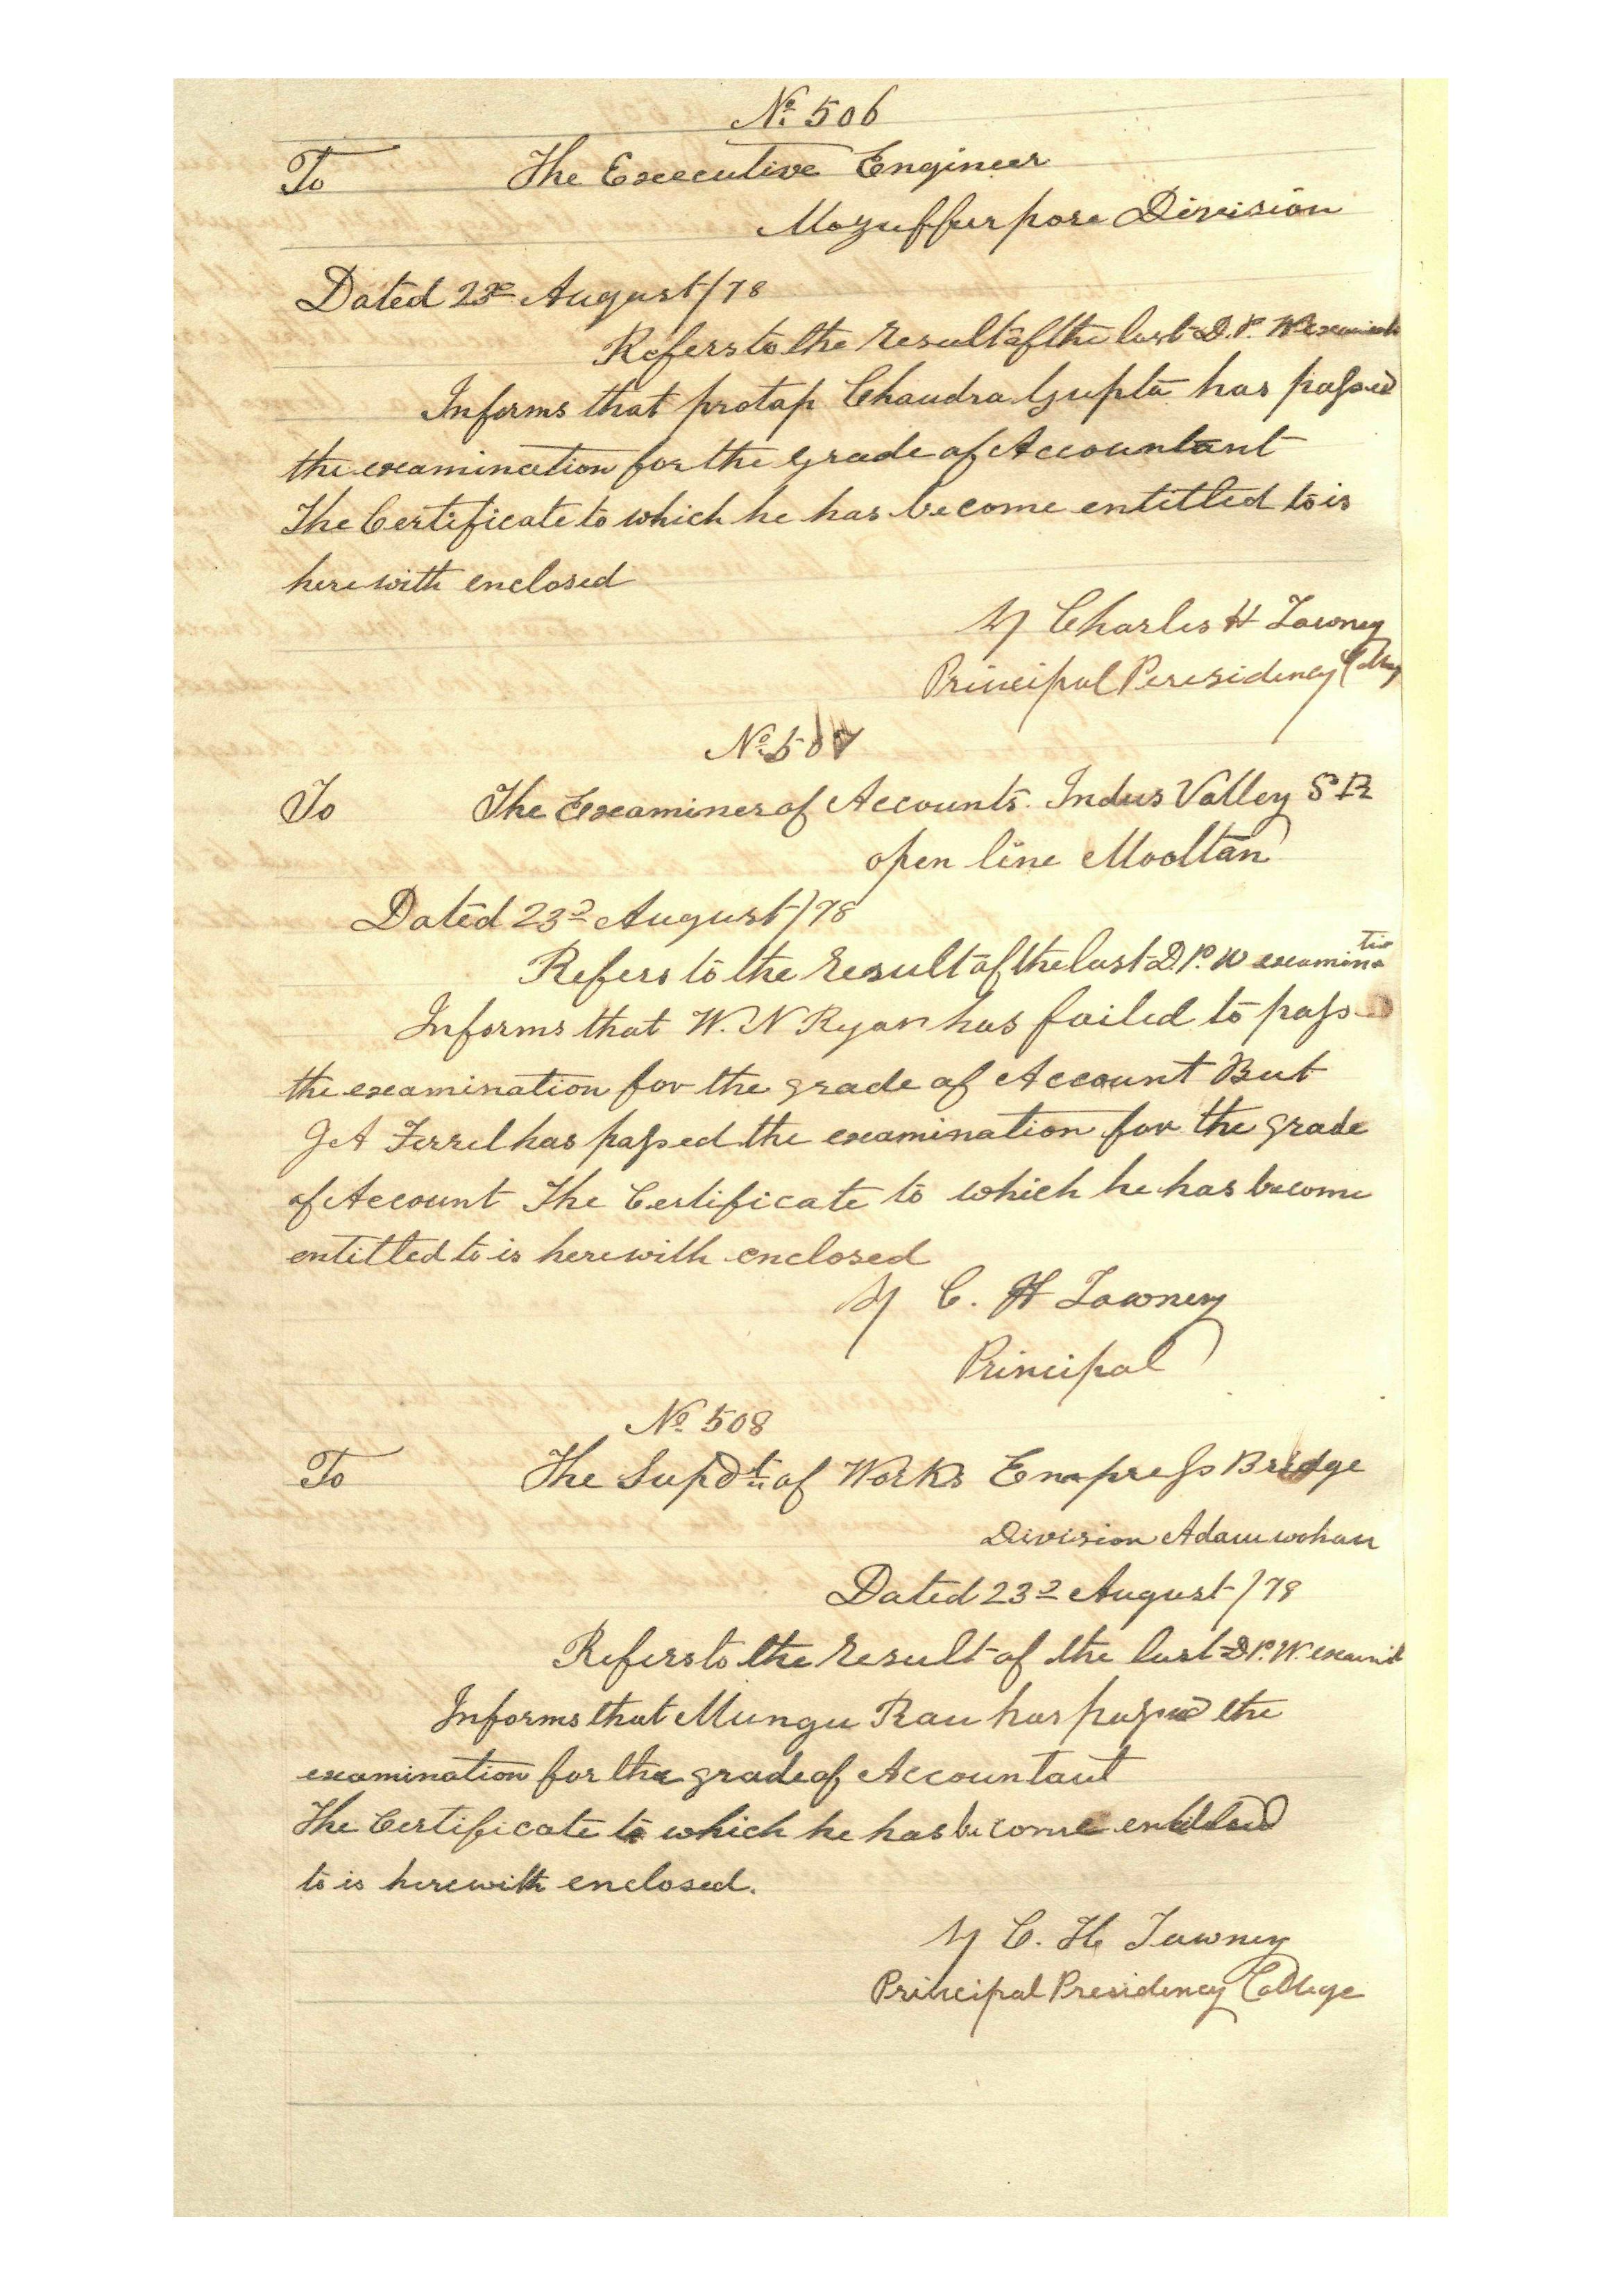 No. 506
To The Executive Engineer
Mozufferpore Division
Dated 23d August/78
Refers to the result of the last D.P.W examinat
Informs that protap Chandra Gupta has passed
the examination for the grade of Accountant
The Certificate to which he has become entitled to is
herewith enclosed
Charles H Tawney
Principal Peresidency
No. 507
To The Examiner of Accounts. Indus Valley S R
open line Mooltan
Dated 23d August/78
Refers to the result of the last D.P.W examination
Informs that W. N Ryan has failed to pass
the examination for the grade of Account But
J A Ferrel has passed the examination for the grade
of Account The Certificate to which he has become
entitled to is herewith enclosed
C. H Tawney
Principal
No. 508
To The Supdt. of Works Empress Bridge
Division Adamwohan
Dated 23d August/78
Refers to the result of the last D.P.W. examinat
Informs that Mungu Rau has passed the
examination for the grade of Accountant
The Certificate to which he has become entitled
to is herewith enclosed.
C. H. Tawney
Principal Presidency College